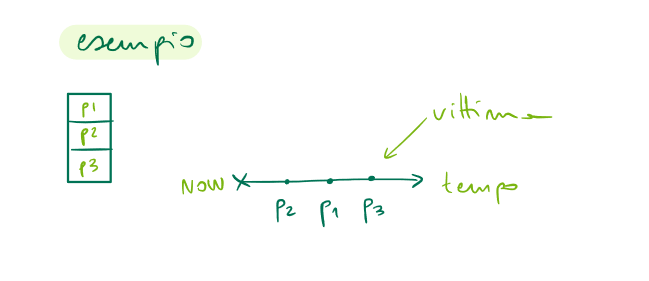 esempio
p1
p2
p3
vittima
NOW
tempo
p2 p1 p3